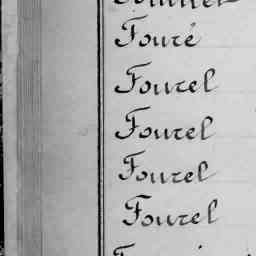 Fouré
Fourel
Fourel
Fourel
Fourel